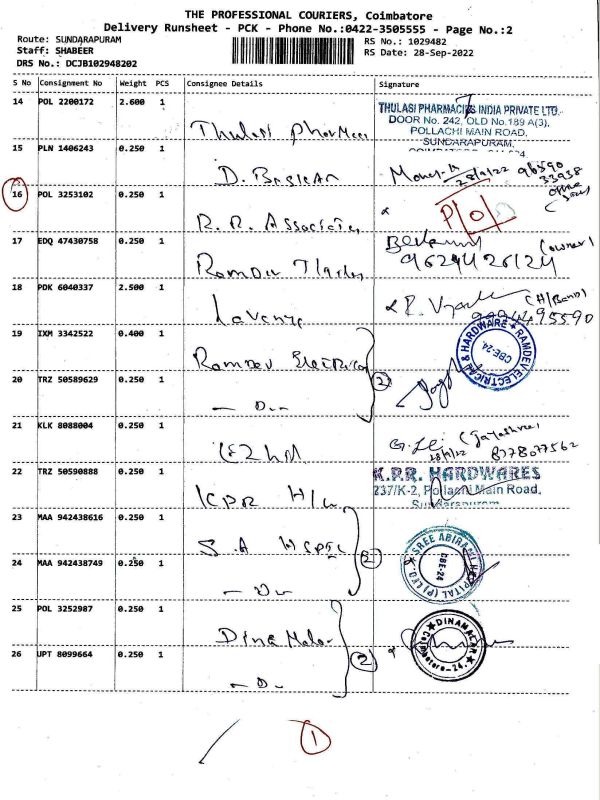 THE PROFESSIONAL COURIERS, Coimbatore
Delivery Runsheet - PCK - Phone No.:0422-3505555 - Page No.:2
Route: SUNDARAPURAM
RS No.: 1029482
Staff: SHABEER
RS Date: 28-Sep-2022
DRS No.: DCJB102948202
S No Consignment No Weight PCS Consignee Details Signature
14 POL 2200172 2.600 1
Thulasi Pharmacy
THULASI PHARMACIES INDIA PRIVATE LTD.
DOOR No. 242, OLD No.189 A(3),
POLLACHI MAIN ROAD,
SUNDARAPURAM,
15 PLN 1406243 0.250 1
D.
28/9/22 96590
33938
office
16 POL 3253102 0.250 1
R. R. Associates
17 EDQ 47430758 0.250 1
Ramdev
(owner)
9629426124
18 PDK 6040337 2.500 1
Lavanya
9994495590
19 IXM 3342522 0.400 1
Ramdev Electrical
RAMDEV ELECTRICAL & HARDWARE
CBE-24.
20 TRZ 50589629 0.250 1
- D. -
2
21 KLK 8088004 0.250 1
(Jayashree)
28/9/22 8778077562
22 TRZ 50590888 0.250 1
KPR H/w
K.P.R. HARDWARES
237/K-2, Pollachi Main Road,
Sundarapuram
23 MAA 942438616 0.250 1
S. A Hospi
SREE ABIRAMI HOSPITAL (P) LTD
CBE-24
24 MAA 942438749 0.250 1
- D -
2
25 POL 3252987 0.250 1
Dina Malar
DINAMALAR
Coimbatore-24.
26 UPT 8099664 0.250 1
- D -
2
1